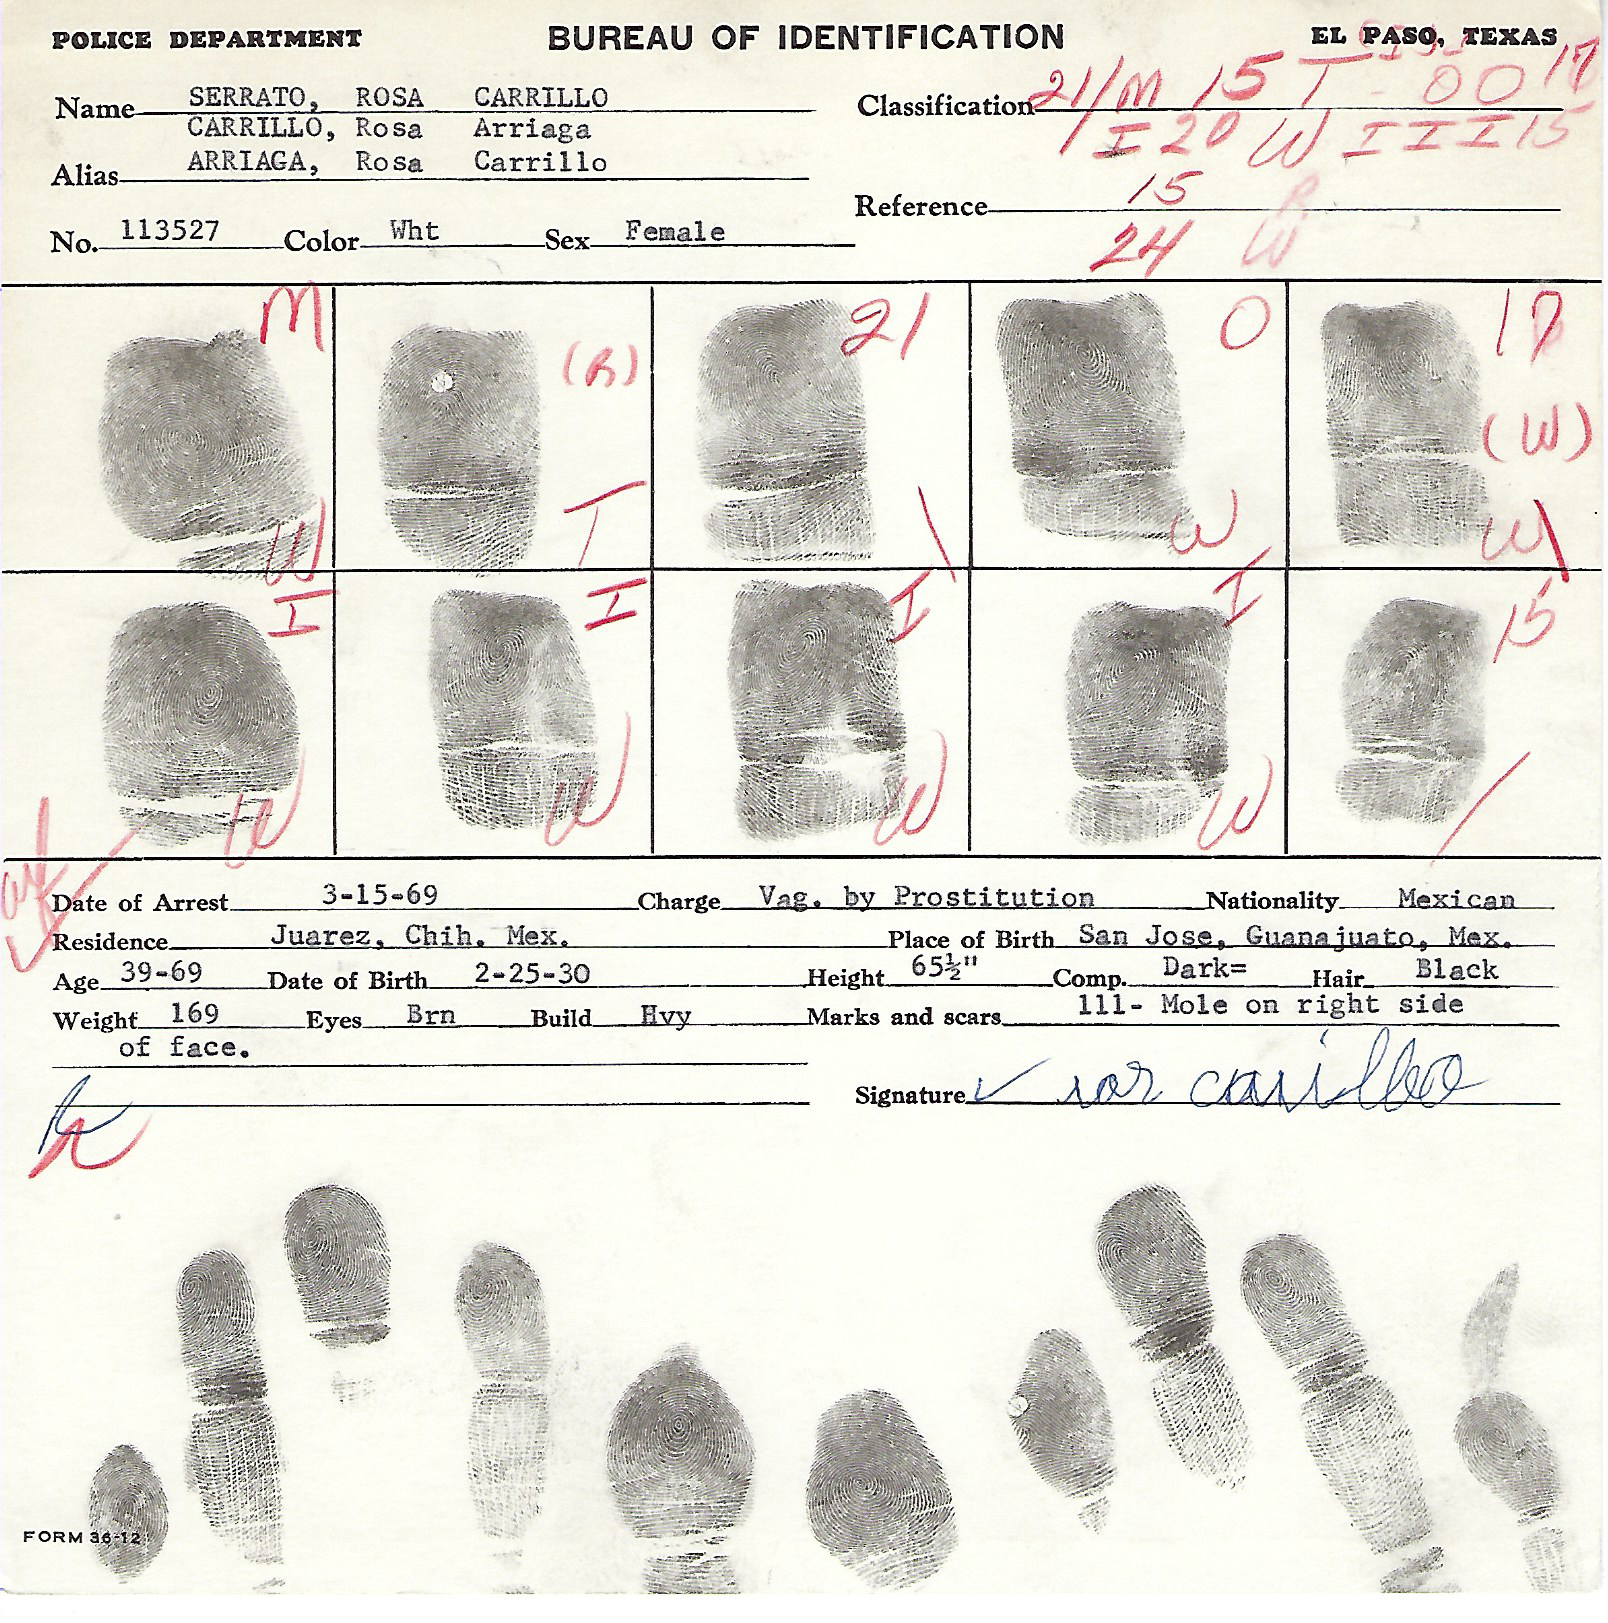 POLICE DEPARTMENT BUREAU OF IDENTIFICATION EL PASO, TEXAS
Name SERRATO, ROSA CARRILLO Classification 21/M 15 T - OO 17
CARRILLO, Rosa Arriaga I 20 W III 15
Alias ARRIAGA, Rosa Carrillo
Reference 15 R
24 W
No. 113527 Color Wht Sex Female
M (R) 21 O 17
(W)
W T \ W W\
I I I I 15
W W W W /
Date of Arrest 3-15-69 Charge Vag. by Prostitution Nationality Mexican
Residence Juarez, Chih. Mex. Place of Birth San Jose, Guanajuato, Mex.
Age 39-69 Date of Birth 2-25-30 Height 65½" Comp. Dark= Hair Black
Weight 169 Eyes Brn Build Hvy Marks and scars 111- Mole on right side
of face.
Signature carilleo
FORM 36-12